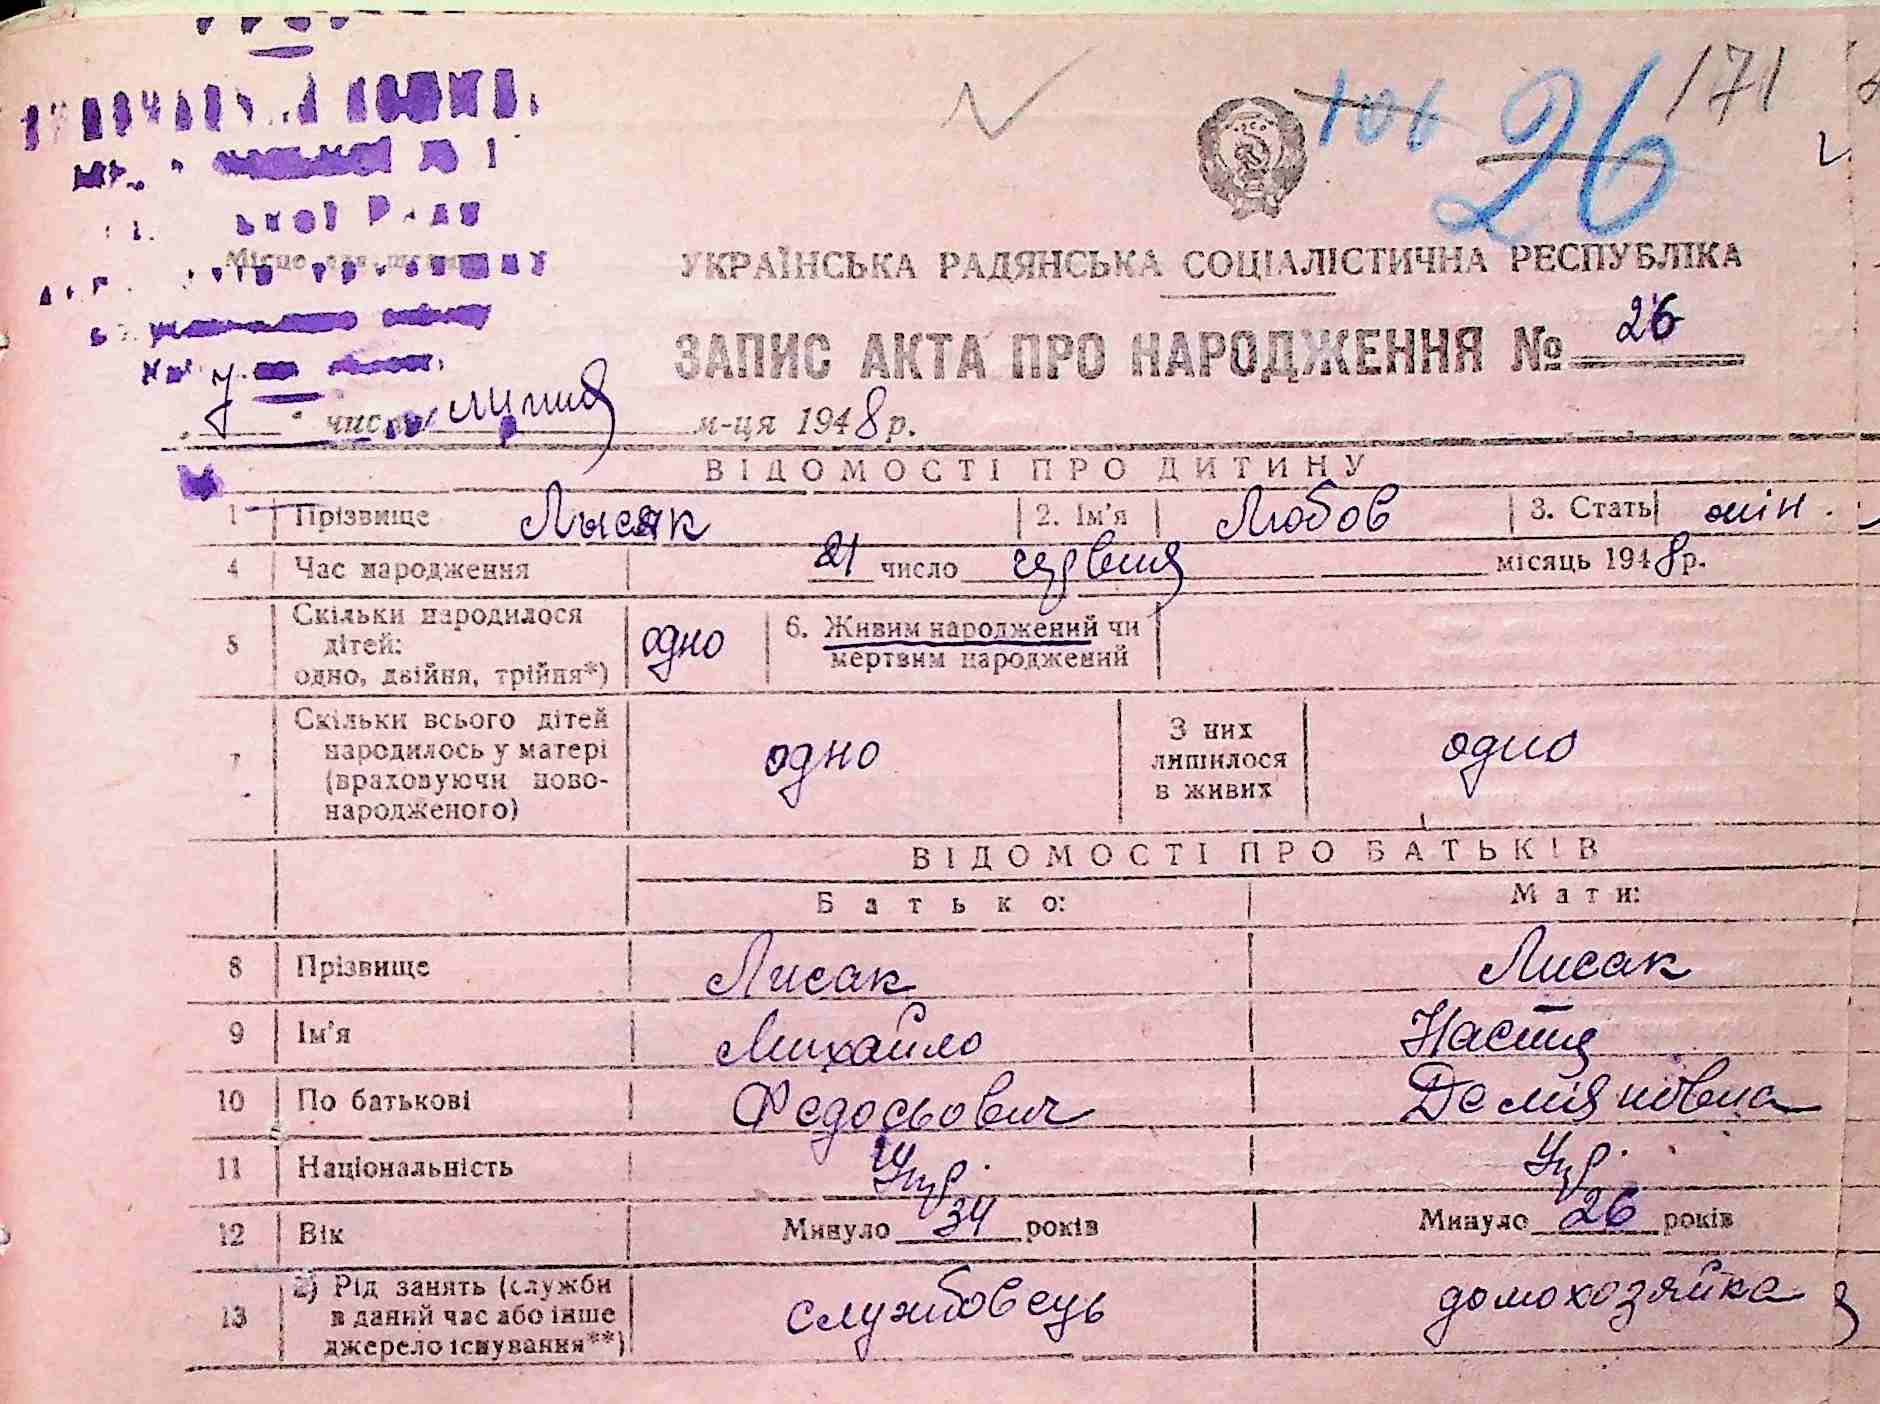 106 26 171
УКРАЇНСЬКА РАДЯНСЬКА СОЦІАЛІСТИЧНА РЕСПУБЛІКА
ЗАПИС АКТА ПРО НАРОДЖЕННЯ № 26
„ 7 " число липня м-ця 1948 р.
ВІДОМОСТІ ПРО ДИТИНУ
1 Прізвище Лысак 2. Ім'я Любов 3. Стать жін.
4 Час народження 21 число червня місяць 1948 р.
5 Скільки народилося дітей: одно, двійня, трійня*) одно 6. Живим народжений чи мертвим народжений
7 Скільки всього дітей народилось у матері (враховуючи новонародженого) одно З них лишилося в живих одно
ВІДОМОСТІ ПРО БАТЬКІВ
Батько: Мати:
8 Прізвище Лисак Лисак
9 Ім'я Михайло Настя
10 По батькові Федосьович Деміянівна
11 Національність Укр. Укр.
12 Вік Минуло 34 років Минуло 26 років
13 а) Рід занять (служби в даний час або інше джерело існування**) службовець домохозяйка